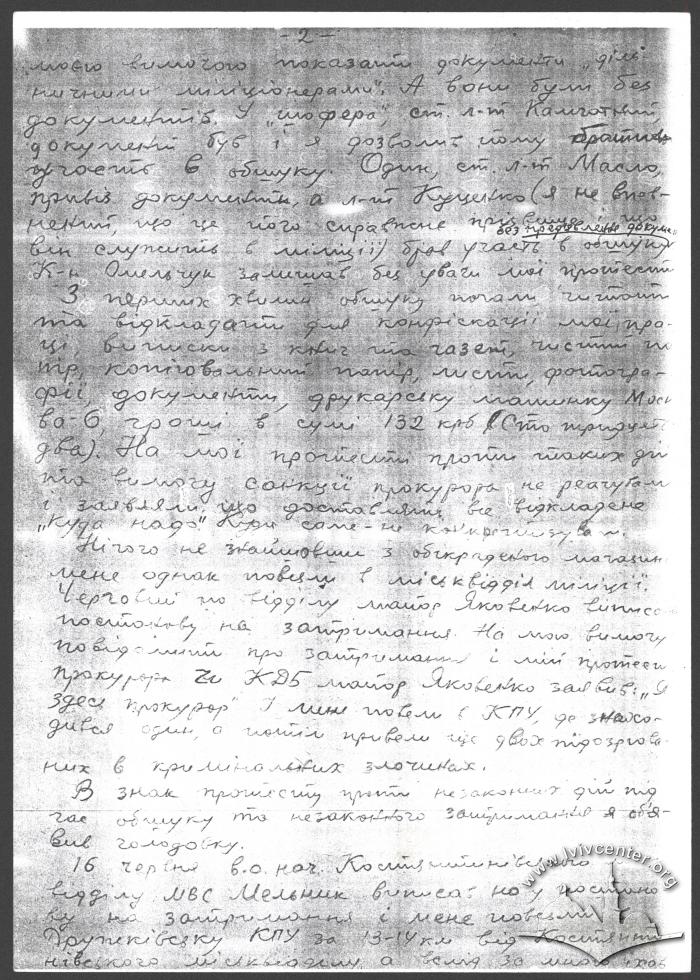 - 2 -
моєю вимогою показати документи „діль
ничними міліціонерами". А вони були без
документів. У „шофера", ст. л-т Камчотний,
документ був і я дозволив йому брати
участь в обшуку. Один, ст. л-т Масло,
привіз документи, а л-т Куценко (я не впев-
нений, що це його справжнє прізвище і що
без предявлення докумен
він служить в міліції) брав участь в обшуку
К-н Омельчук залишав без уваги мої протести
З перших хвилин обшуку почали читати
та відкладати для конфіскації мої пра-
ці, виписки з книг та газет, чистий па
пір, копіювальний папір, листи, фотогра-
фії, документи, друкарську машинку Моск
ва-6, гроші в сумі 132 крб (Сто тридцять
два). На мої протести проти таких дій
та вимогу санкції прокурора не реагували
і заявляли, що доставлять все відкладене
„куда надо" Куди саме - не конкретизували.
Нічого не знайшовши з обкраденого магазину
мене однак повезли в міськвідділ міліції.
Черговий по відділу майор Яковенко виписав
постанову на затримання. На мою вимогу
повідомити про затримання і мій протест
прокурора чи КДБ майор Яковенко заявив: „Я
здесь прокурор" І мене повели в КПУ, де знахо-
дився один, а потім привели ще двох підозрюва-
них в кримінальних злочинах.
В знак протесту проти незаконних дій під
час обшуку та незаконного затримання я обя-
вив голодовку.
16 червня в.о. нач. Костянтинівського
відділу МВС Мельник виписав нову постано
ву на затримання і мене повезли
Дружківську КПУ за 13-14 км від Костянти
нівського міськвідділу а вслід за мною їхав
www.lvivcenter.org